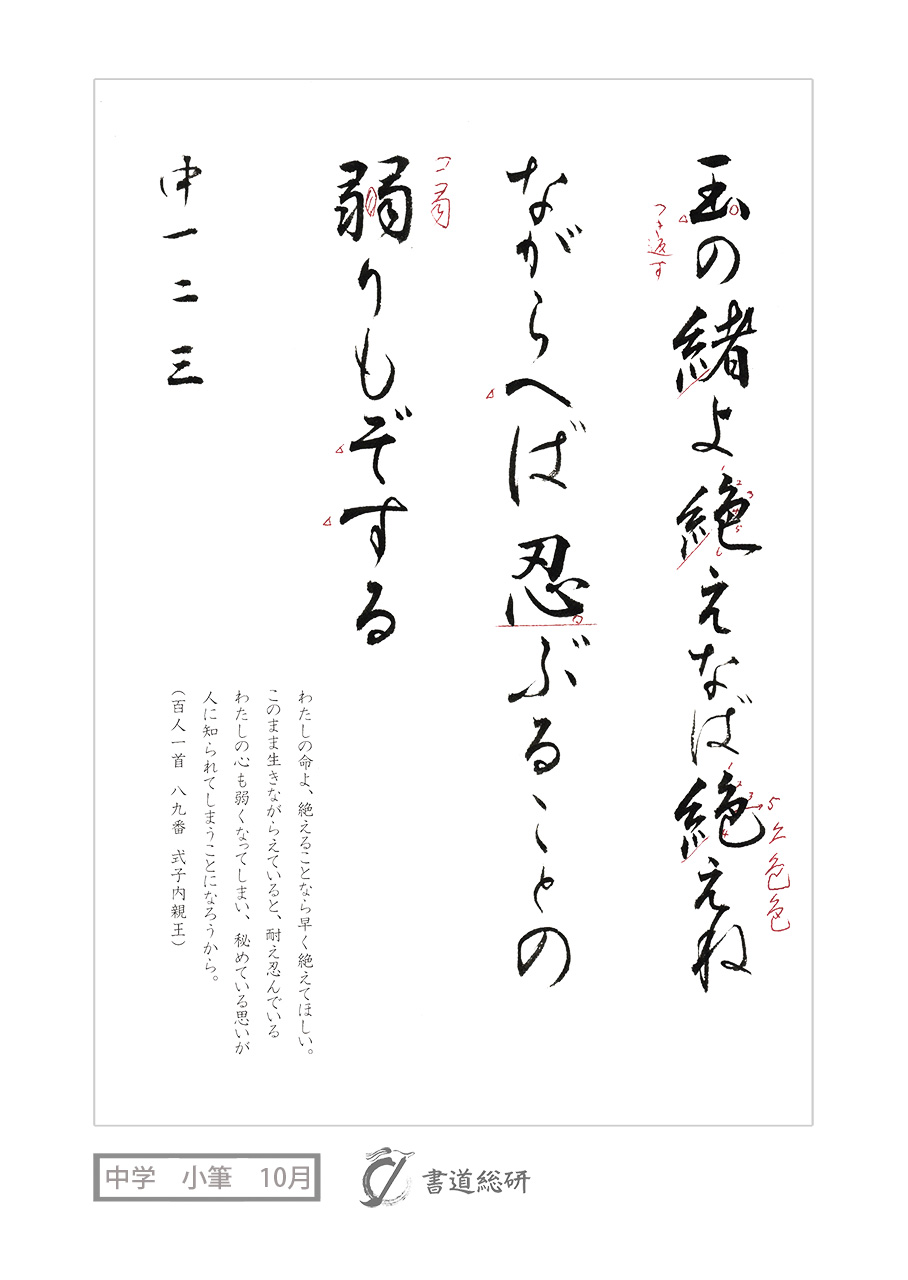 玉の緒よ絶えなば絶えね
ながらへば忍ぶることの
弱りもぞする
中一二三
つき返す
わたしの命よ、絶えることなら早く絶えてほしい。
このまま生きながらえていると、耐え忍んでいる
わたしの心も弱くなってしまい、秘めている思いが
人に知られてしまうことになろうから。
(百人一首 八九番 式子内親王)
中学 小筆 10月
書道総研